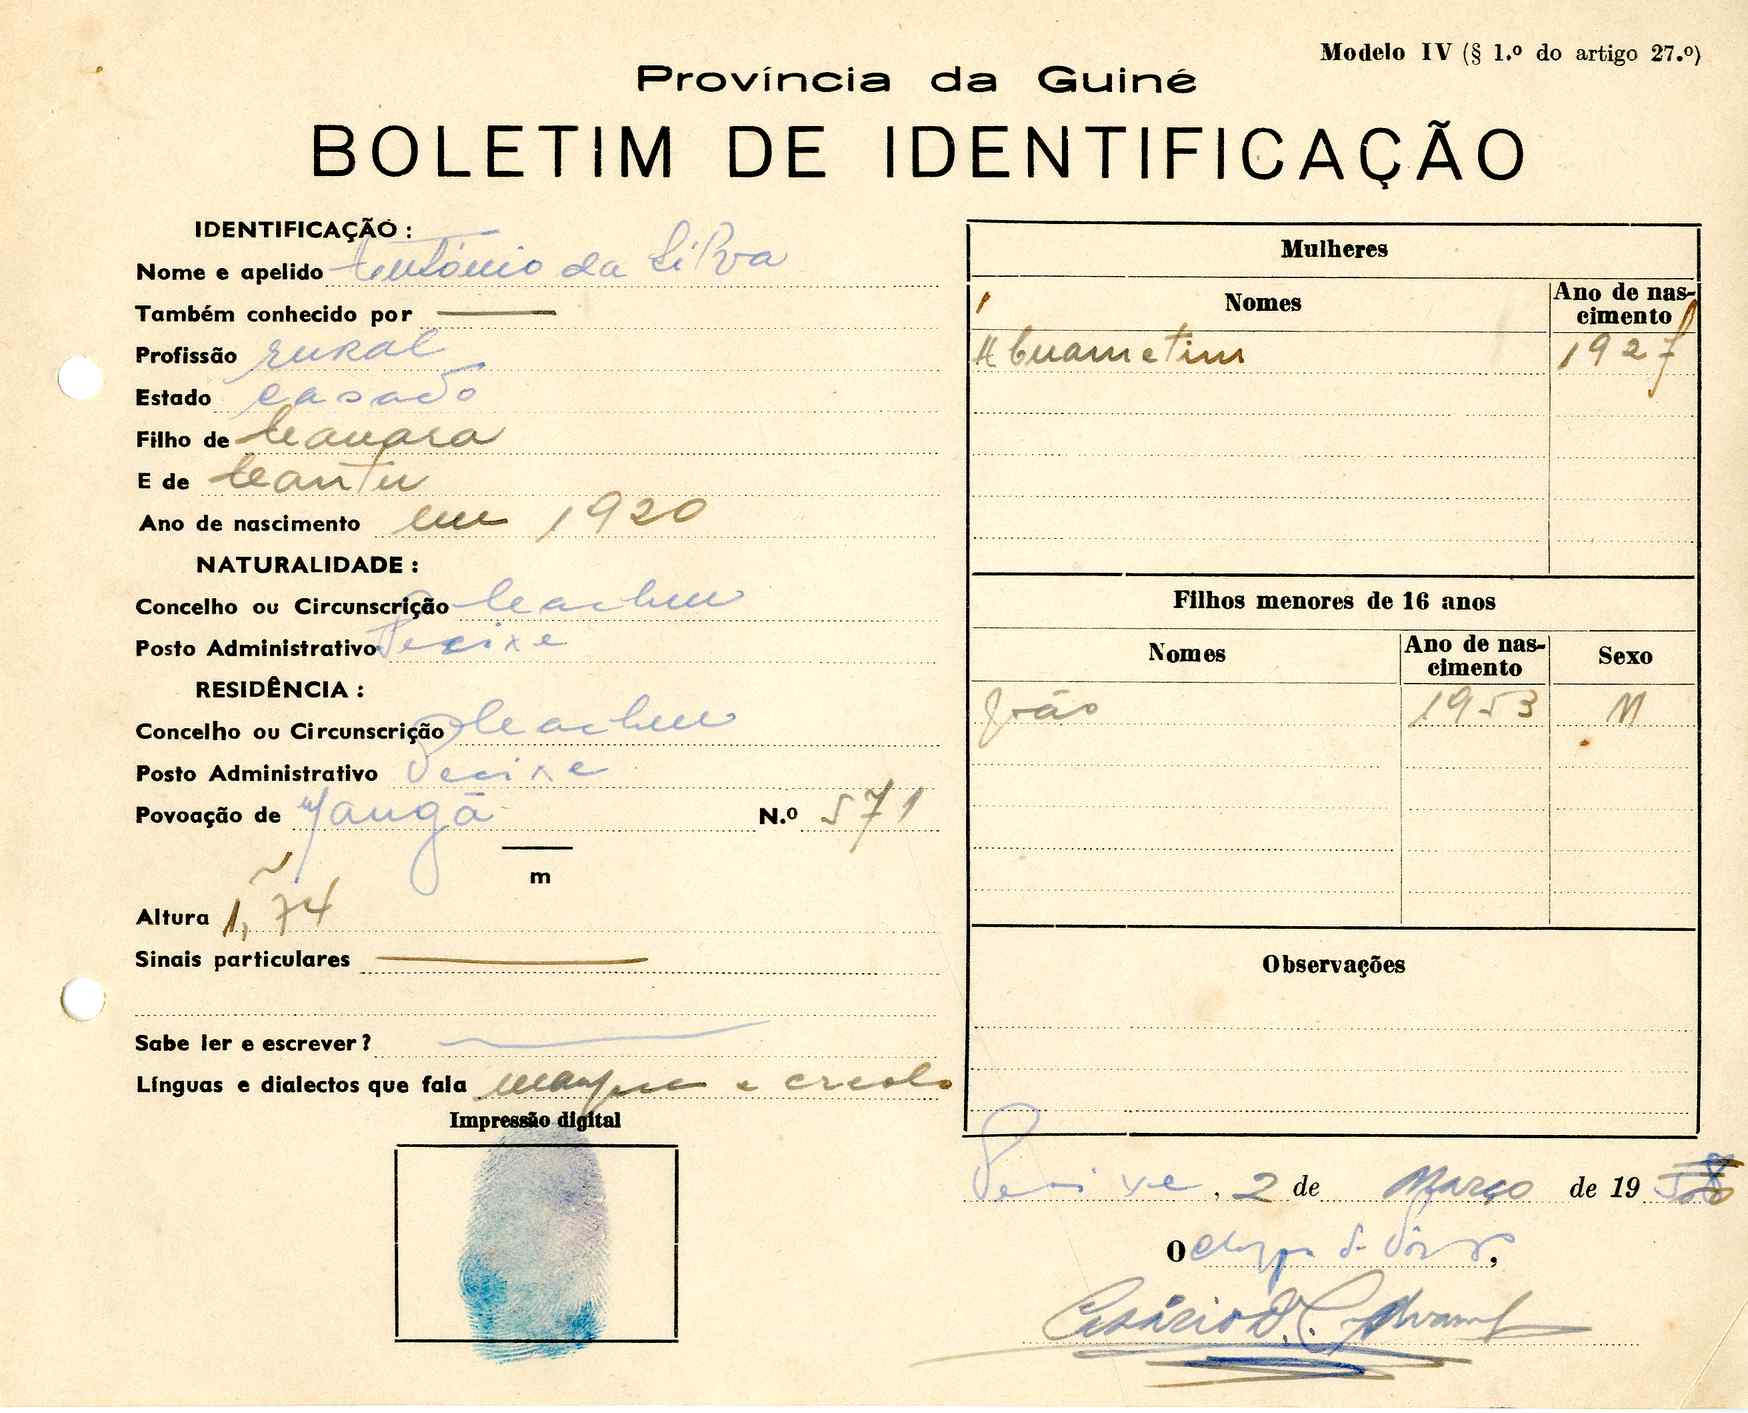 Modelo IV (§ 1.º do artigo 27.º)
Província da Guiné
BOLETIM DE IDENTIFICAÇÃO
IDENTIFICAÇÃO :
Nome e apelido António da Silva
Também conhecido por
Profissão rural
Estado casado
Filho de
E de
Ano de nascimento em 1920
NATURALIDADE :
Concelho ou Circunscrição Cacheu
Posto Administrativo Pecixe
RESIDÊNCIA :
Concelho ou Circunscrição Cacheu
Posto Administrativo Pecixe
Povoação de N.º 571
m
Altura 1,74
Sinais particulares
Sabe ler e escrever ?
Línguas e dialectos que fala e creolo
Impressão digital
Mulheres
Nomes
Ano de nas-
cimento
1927
Filhos menores de 16 anos
Nomes
Ano de nas-
cimento
Sexo
João 1953 M
Observações
Pecixe, 2 de Março de 19
O